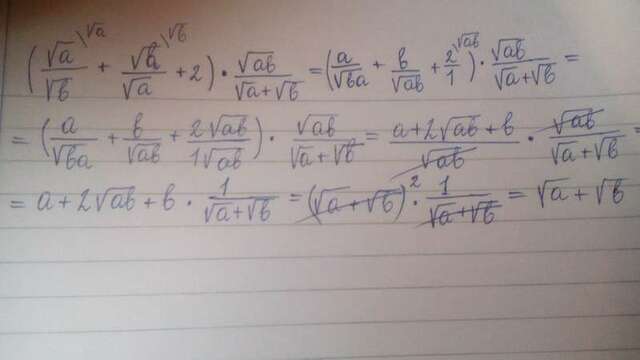 (√a/√b \√a + √b/√a \√b + 2) · √ab/(√a+√b) = (a/√ba + b/√ab + 2/1 \√ab) · √ab/(√a+√b) =
= (a/√ba + b/√ab + 2√ab/1√ab) · √ab/(√a+√b) = (a+2√ab+b)/√ab · √ab/(√a+√b) =
= a+2√ab+b · 1/(√a+√b) = (√a+√b)² · 1/(√a+√b) = √a+√b